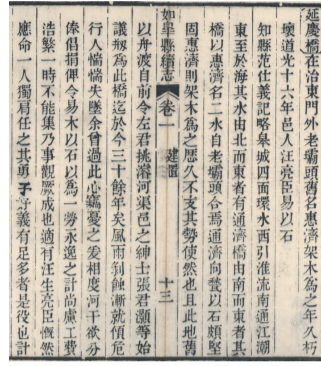 延慶橋在治東門外老壩頭舊名惠濟架木為之年久朽
壞道光十六年邑人汪亮臣易以石
知縣范仕義記略皋城四面環水西引淮流南通江湖
東至於海其水由北而東者有通濟橋由南而東者其
橋以惠濟名二水自老壩頭合焉通濟向甃以石頗堅
固惠濟則架木為之歷久不支其勢使然也且此地舊
如皋縣續志
卷一
建置
十三
以舟渡自前令左君挑濬河渠邑之紳士張君灝等始
議剏為此橋迄於今三十餘年矣風雨剝蝕漸就傾危
行人惴惴失墜余曾過此心竊憂之爰相度河干欲分
俸倡捐俾令易木以石以為一勞永逸之計尚慮工費
浩繁一時不能集乃事觀厥成也適有汪生亮臣慨然
應命一人獨肩任之其勇于好義有足多者是役也計